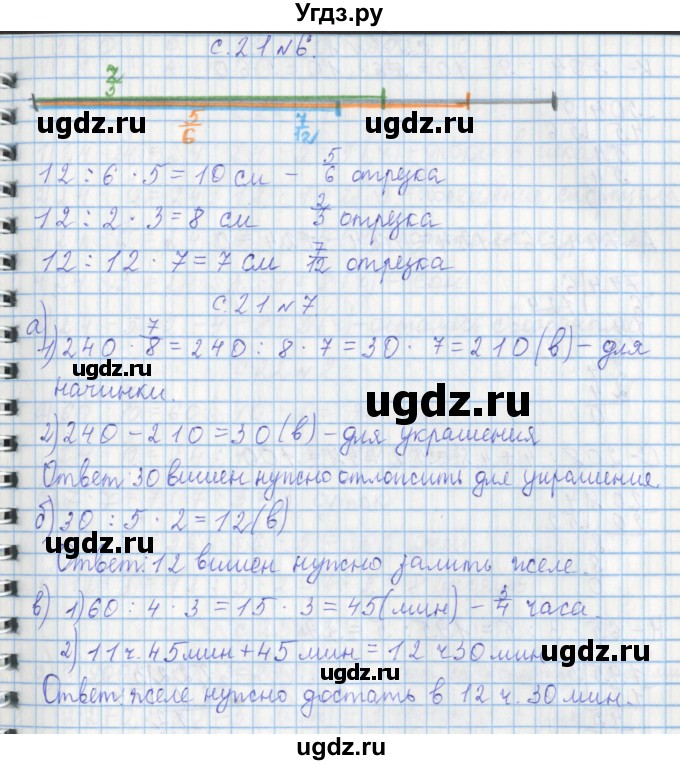 Угдз.ру
с. 21 №6.
2/3
5/6 7/12
ugdz.ru ugdz.ru
12 : 6 · 5 = 10 см – 5/6 отрезка
12 : 2 · 3 = 8 см 2/3 отрезка
12 : 12 · 7 = 7 см 7/12 отрезка
с. 21 №7
а)
1) 240 · 7/8 = 240 : 8 · 7 = 30 · 7 = 210 (в) – для
ugdz.ru
начинки.
ugdz.ru
2) 240 – 210 = 30 (в) – для украшения
Ответ: 30 вишен нужно отложить для украшения.
б) 30 : 5 · 2 = 12 (в)
ugdz.ru ugdz.ru
Ответ: 12 вишен нужно залить желе.
в) 1) 60 : 4 · 3 = 15 · 3 = 45 (мин) – 3/4 часа.
2) 11 ч. 45 мин + 45 мин = 12 ч 30 мин
ugdz.ru ugdz.ru
Ответ: желе нужно достать в 12 ч. 30 мин.
ugdz.ru